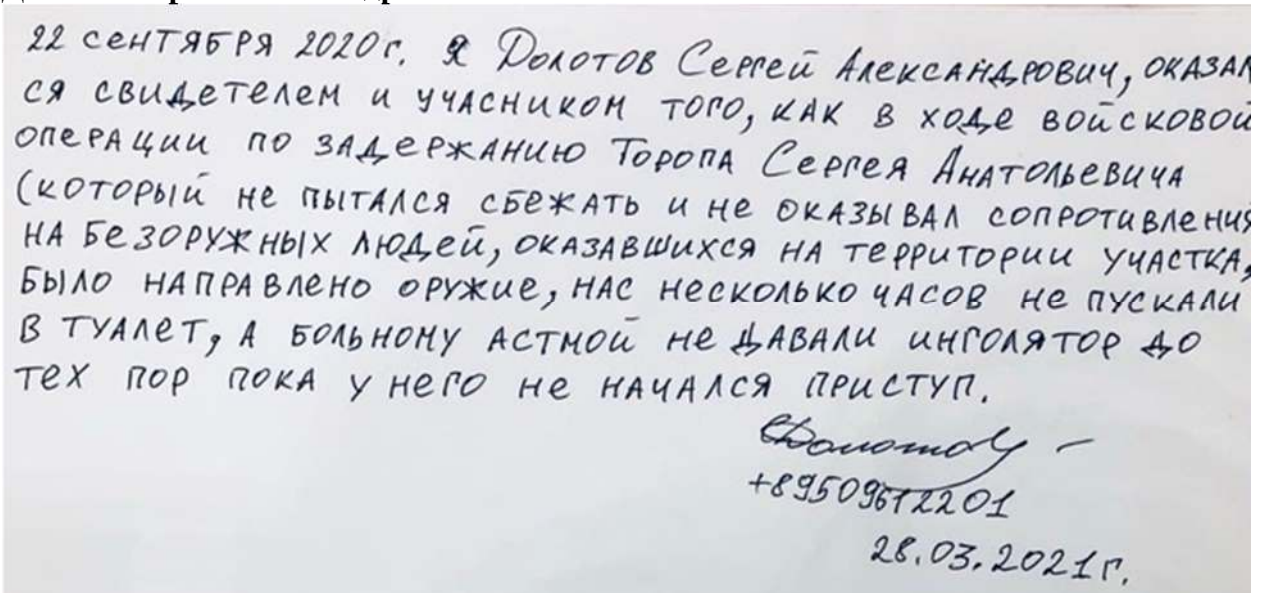 22 сентября 2020г. я Долотов Сергей Александрович, оказал
ся свидетелем и учасником того, как в ходе войсковой
операции по задержанию Торопа Сергея Анатольевича
(который не пытался сбежать и не оказывал сопротивления
на безоружных людей, оказавшихся на территории участка,
было направлено оружие, нас несколько часов не пускали
в туалет, а больному астмой не давали инголятор до
тех пор пока у него не начался приступ.
+89509612201
28.03.2021г.